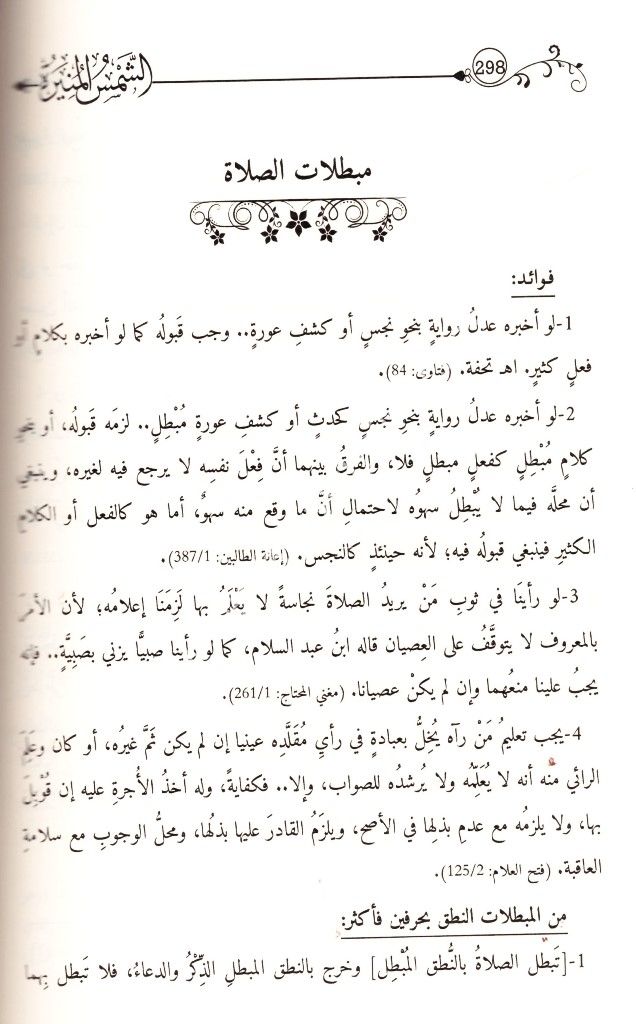 الشَّمْسُ المُنِيرَةُ
298
مبطلات الصلاة
فوائد:
1-لو أخبره عدلُ روايةٍ بنحوِ نجسٍ أو كشفِ عورةٍ.. وجب قَبولُه كما لو أخبره بكلامٍ أو
فعلٍ كثيرٍ. اهـ تحفة. (فتاوى: 84).
2-لو أخبره عدلُ روايةٍ بنحوِ نجسٍ كحدثٍ أو كشفِ عورةٍ مُبْطِلٍ.. لزمَه قَبولُه، أو بنحوِ
كلامٍ مُبْطِلٍ كفعلٍ مبطلٍ فلا، والفرقُ بينهما أنَّ فِعْلَ نفسِه لا يرجع فيه لغيره، وينبغي
أن محلَّه فيما لا يُبْطِلُ سهوُه لاحتمالِ أنَّ ما وقع منه سهوٌ، أما هو كالفعل أو الكلام
الكثيرِ فينبغي قبولُه فيه؛ لأنه حينئذٍ كالنجس. (إعانة الطالبين: 387/1).
3-لو رأينَا في ثوبِ مَنْ يريدُ الصلاةَ نجاسةً لا يَعْلَمُ بها لَزِمَنَا إعلامُه؛ لأن الأمرَ
بالمعروف لا يتوقَّفُ على العِصيان قاله ابنُ عبد السلام، كما لو رأينا صبيًّا يزني بصَبِيَّةٍ.. فإنه
يجبُ علينا منعُهما وإن لم يكنْ عصيانا. (مغني المحتاج: 261/1).
4-يجب تعليمُ مَنْ رآه يُخِلُّ بعبادةٍ في رأيِ مُقَلَّدِه عينيا إن لم يكن ثَمَّ غيرُه، أو كان وعَلِمَ
الرائي منه أنه لا يُعَلِّمُه ولا يُرشدُه للصواب، وإلا.. فكفايةً، وله أخذُ الأُجرةِ عليه إن قُوْبِلَ
بها، ولا يلزمُه مع عدمِ بذلِها في الأصح، ويلزَمُ القادرَ عليها بذلُها، ومحلُّ الوجوبِ مع سلامةِ
العاقبة. (فتح العلام: 125/2).
مِن المبطلات النطق بحرفين فأكثر:
1-[تَبطل الصلاةُ بالنُّطق المُبْطِل] وخرج بالنطق المبطلِ الذِّكْرُ والدعاءُ، فلا تَبطل بِهِما